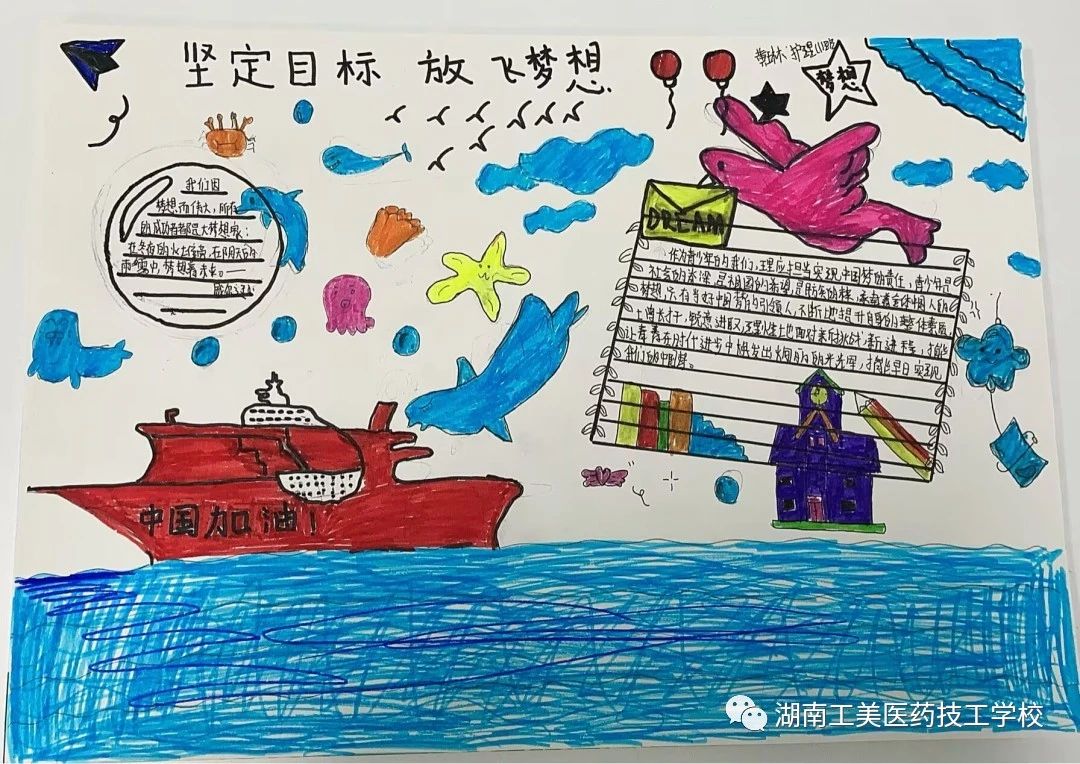 坚定目标 放飞梦想
护理
梦想
我们因
梦想而伟大，所有
的成功者都是大梦想家：
在冬夜的火堆旁，在阴天的
雨雪中，梦想着未来。——
DREAM
作为青少年的我们，理应担当实现中国梦的责任，青少年是
社会的未来，是祖国的希望，是
梦想，只有当好中国梦的引领人，不断地提升自身的整体素质
成长才干，锐意进取，
让青春在时代进步中焕发出炯炯的光辉，才能早日实现
我们的中国梦。
中国加油！
湖南工美医药技工学校